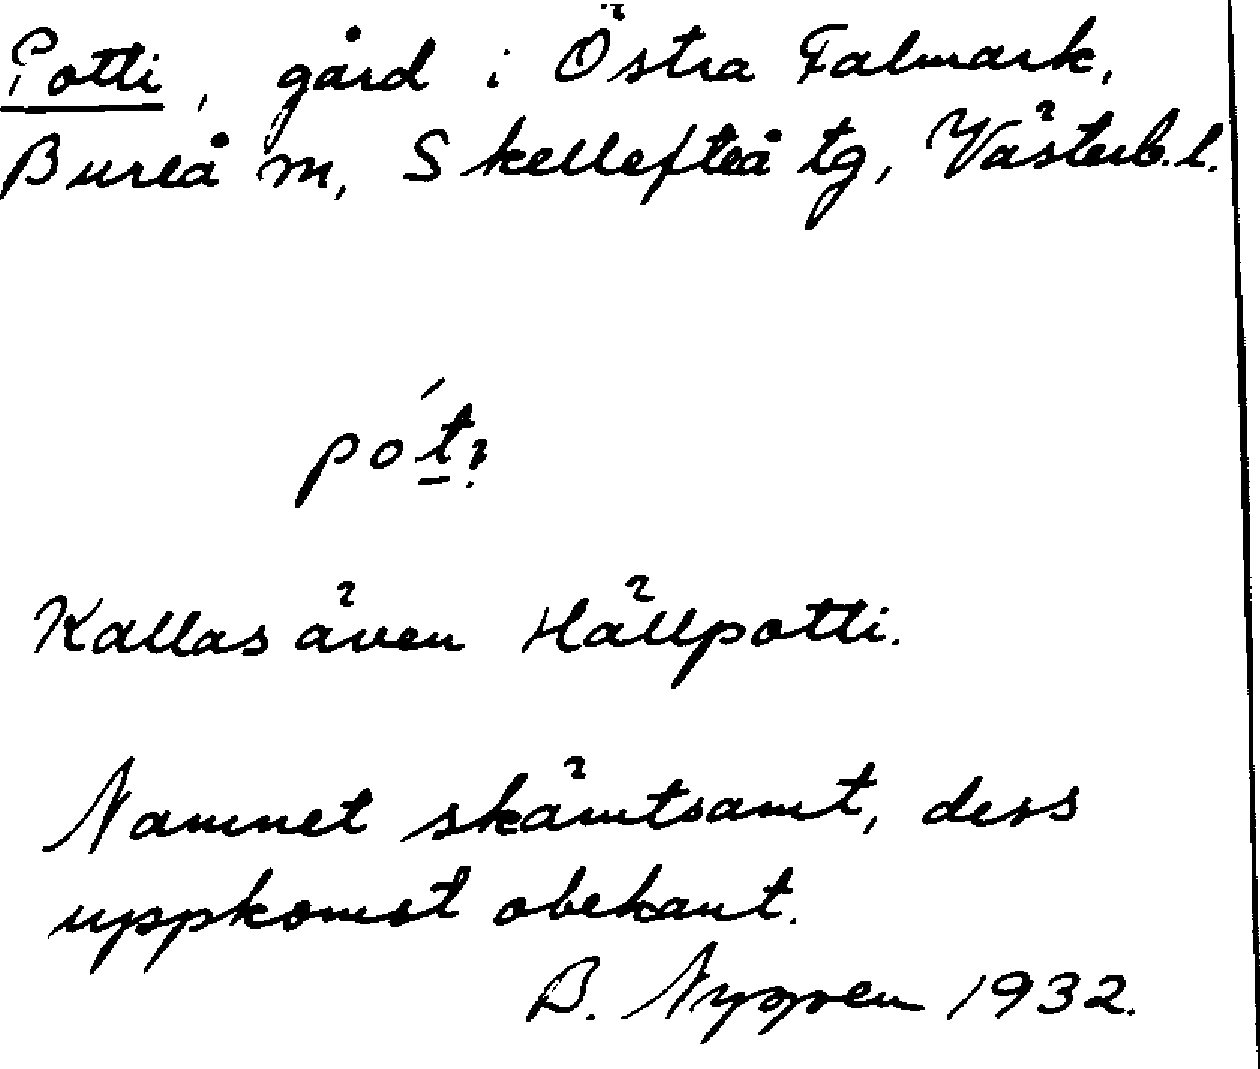 Potti, gård i Östra Falmark,
Bureå m, Skellefteå tg, Västerb. l.
Kallas även Hällpotti.
Namnet skämtsamt, dess
uppkomst obekant.
B. 1932.